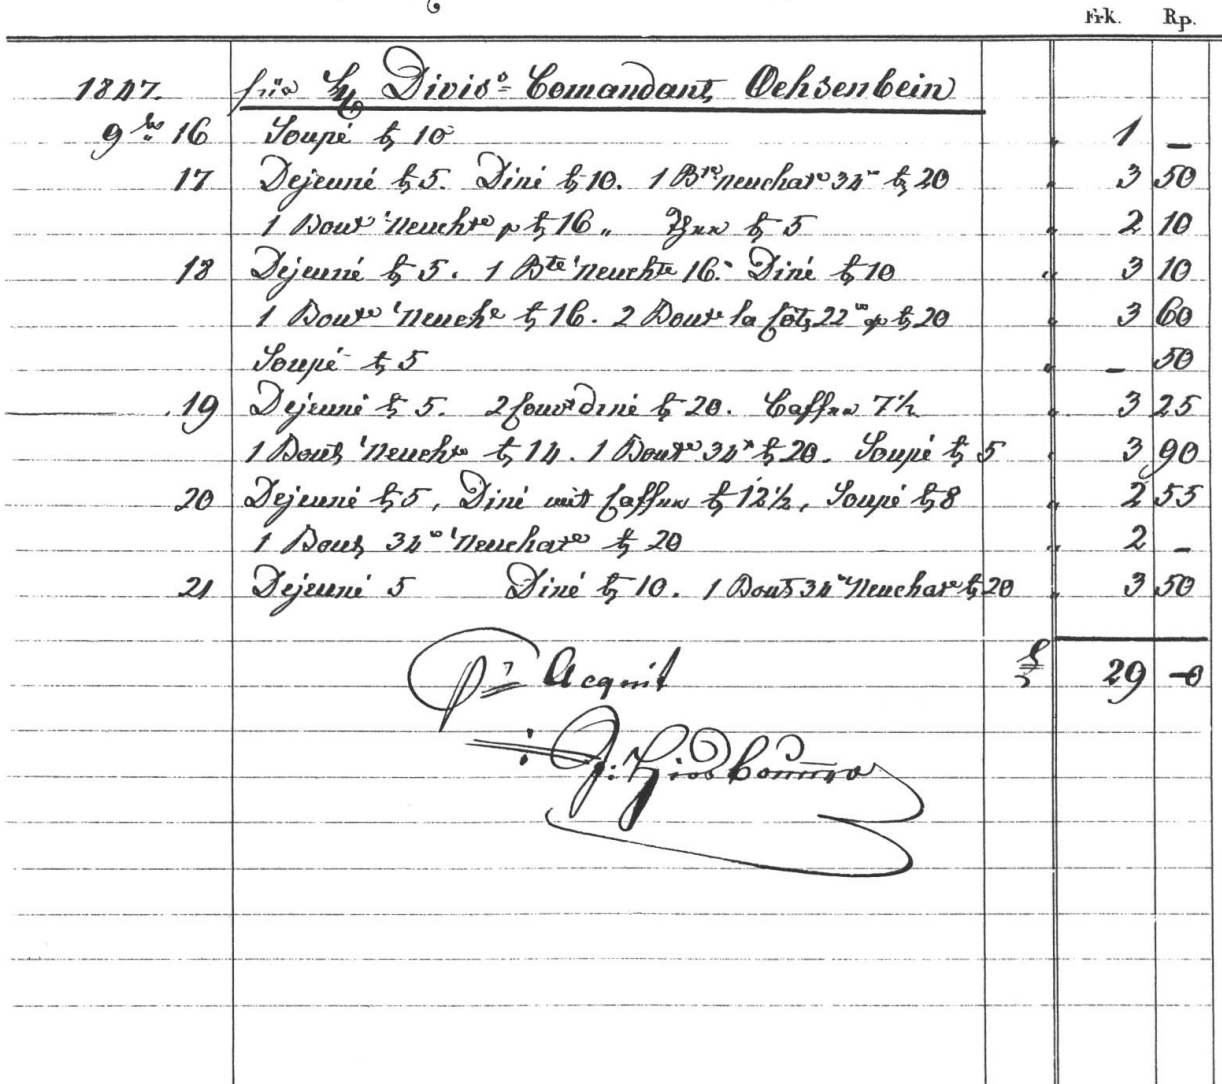 Frk. Rp.
1847. für Hr Divis⁰= Comandant Ochsenbein
9br 16 Soupé bz 10 " 1 —
17 Dejeuné bz 5. Diné bz 10. 1 Bte neuchate 34r bz 20 " 3 50
1 Bout Neuchte p bz 16 " bz 5 " 2 10
18 Dejeuné bz 5. 1 Bte Neuchte 16. Diné bz 10 " 3 10
1 Boute Neuche bz 16. 2 Boute la Cote 22r p bz 20 " 3 60
Soupé bz 5 " — 50
19 Dejeuné bz 5. 2 Couvt diné bz 20. Caffee 7½ " 3 25
1 Bout Neuchte bz 14. 1 Boute 34r bz 20. Soupé bz 5 " 3 90
20 Dejeuné bz 5, Diné mit Caffee bz 12½, Soupé bz 8 " 2 55
1 Bout 34r Neuchate bz 20 " 2 —
21 Dejeuné 5 Diné bz 10. 1 Bout 34r Neuchate bz 20 " 3 50
pr Acquit 29 —